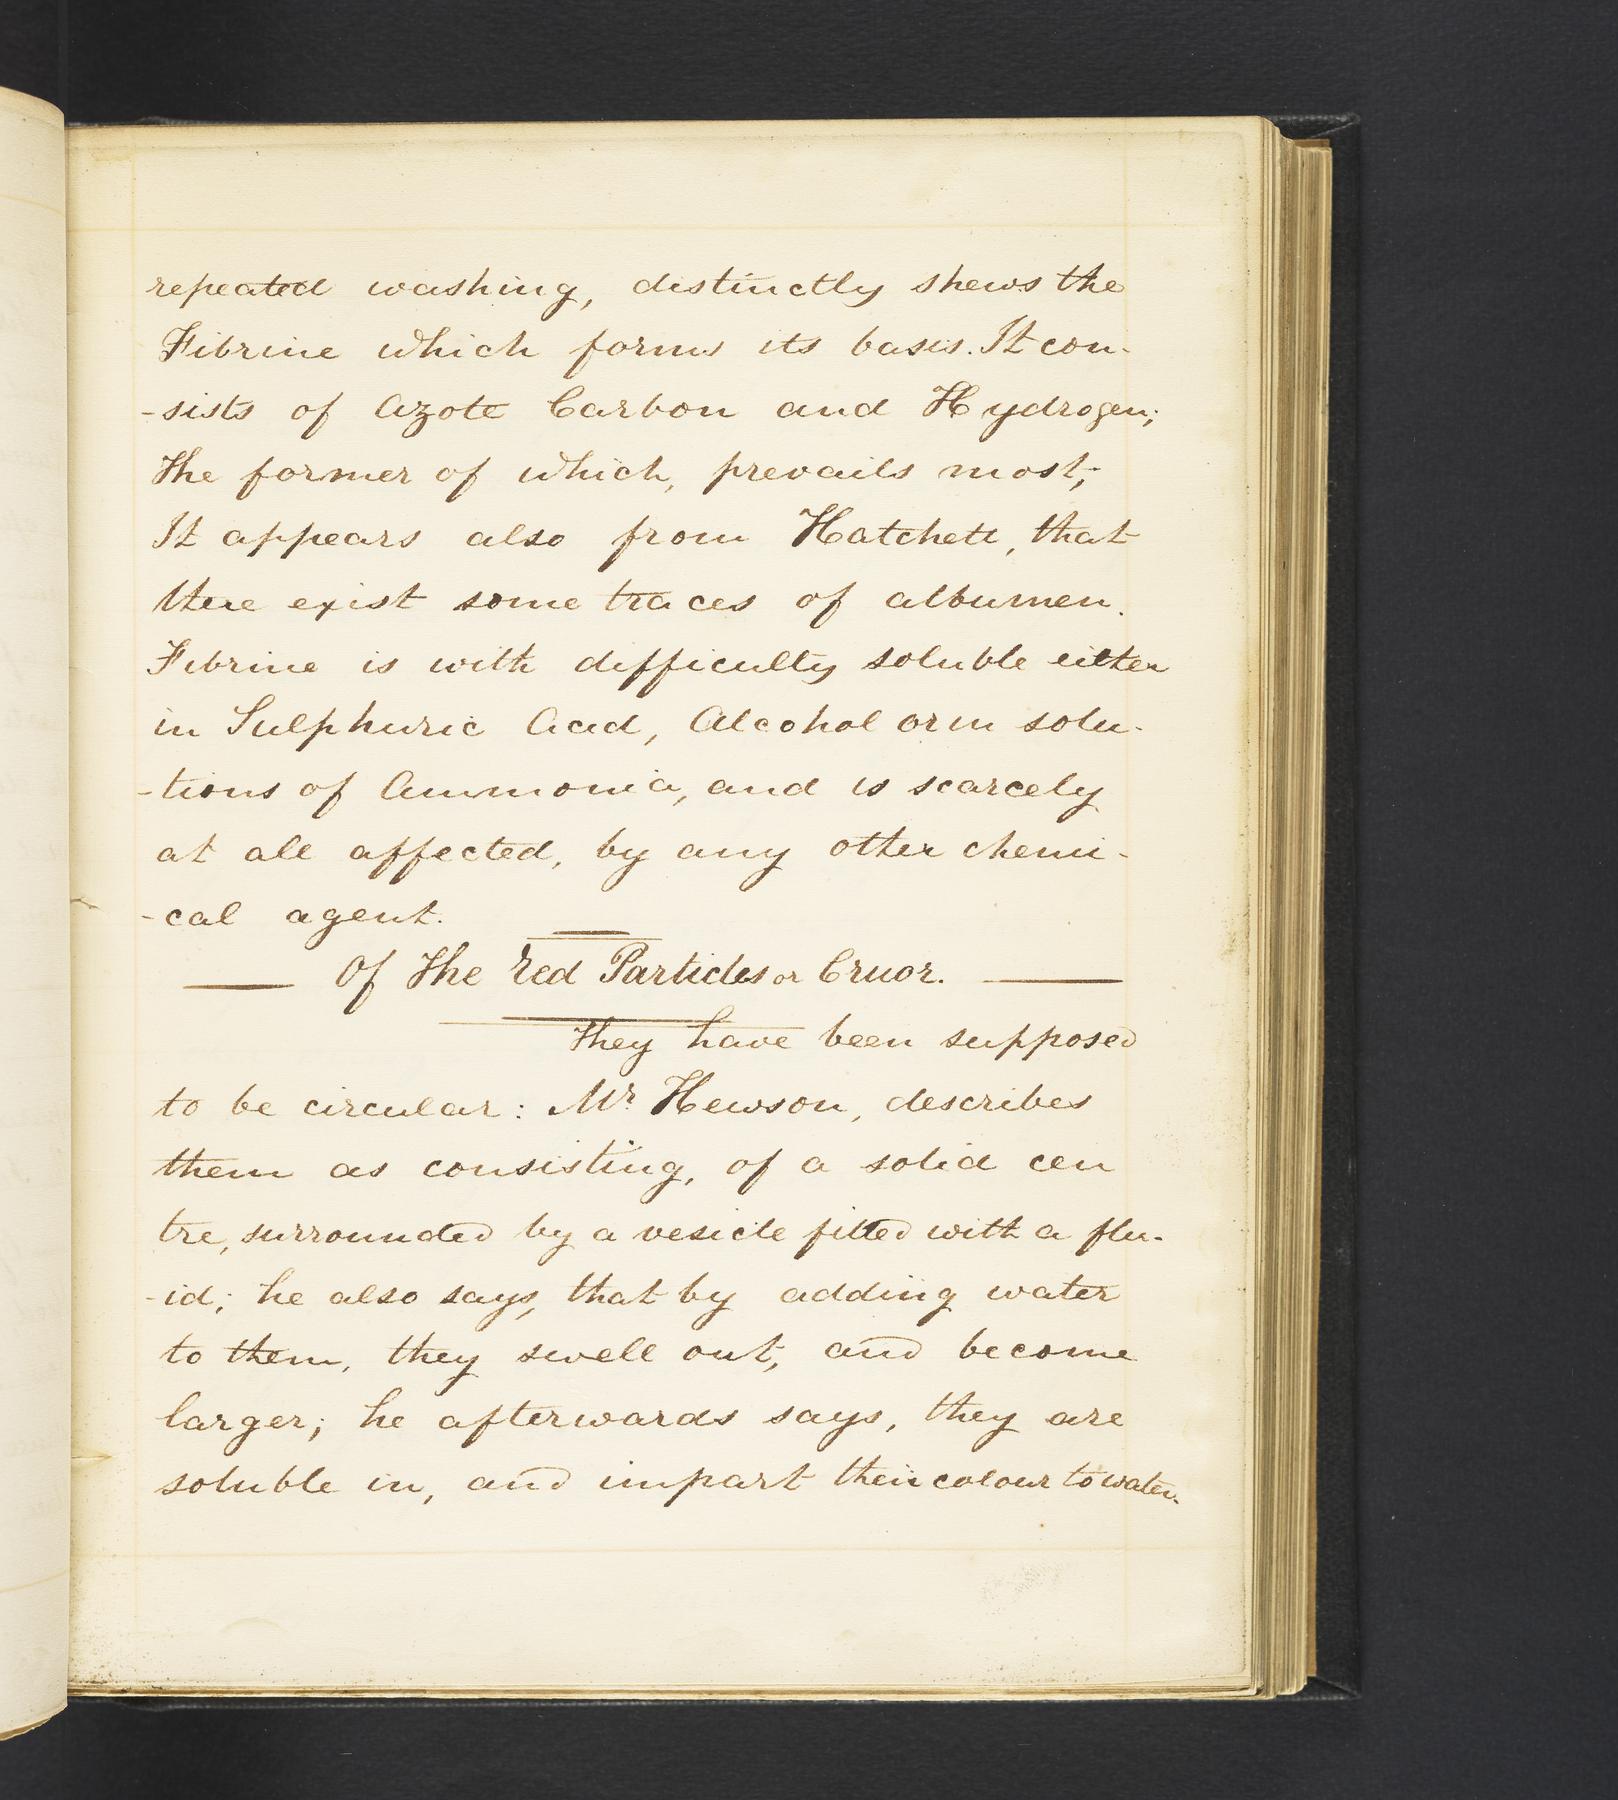 repeated washing, distinctly shews the
Fibrine which forms its basis. It con-
-sists of Azote Carbon and Hydrogen;
the former of which, prevails most;
It appears also from Hatchett, that
there exist some traces of albumen.
Fibrine is with difficulty soluble either
in Sulphuric Acid, Alcohol or in solu-
-tions of Ammonia, and is scarcely
at all affected, by any other chemi-
-cal agent.
Of the red Particles or Cruor.
They have been supposed
to be circular: Mr. Hewson, describes
them as consisting, of a solid cen
tre, surrounded by a vesicle filled with a flu-
-id; he also says, that by adding water
to them, they swell out, and become
larger; he afterwards says, they are
soluble in, and impart their colour to water.